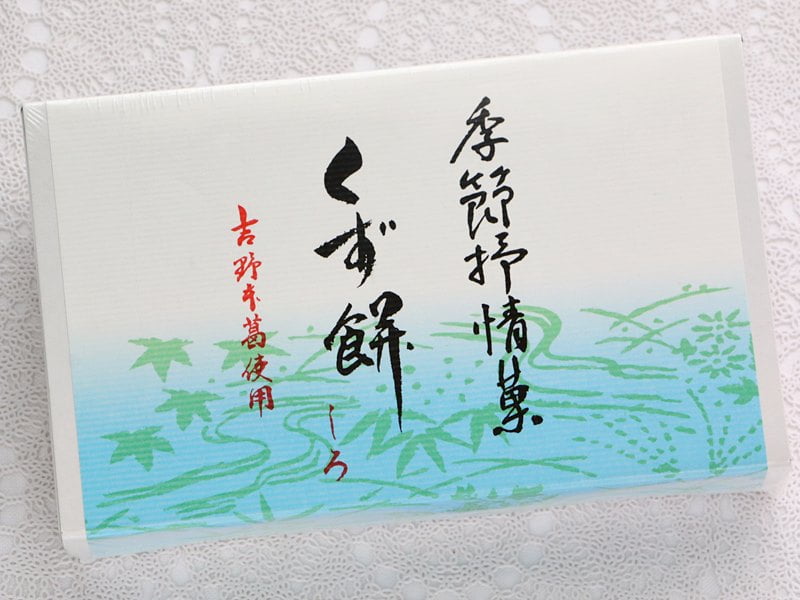 季節抒情菓
くず餅
しろ
吉野本葛使用